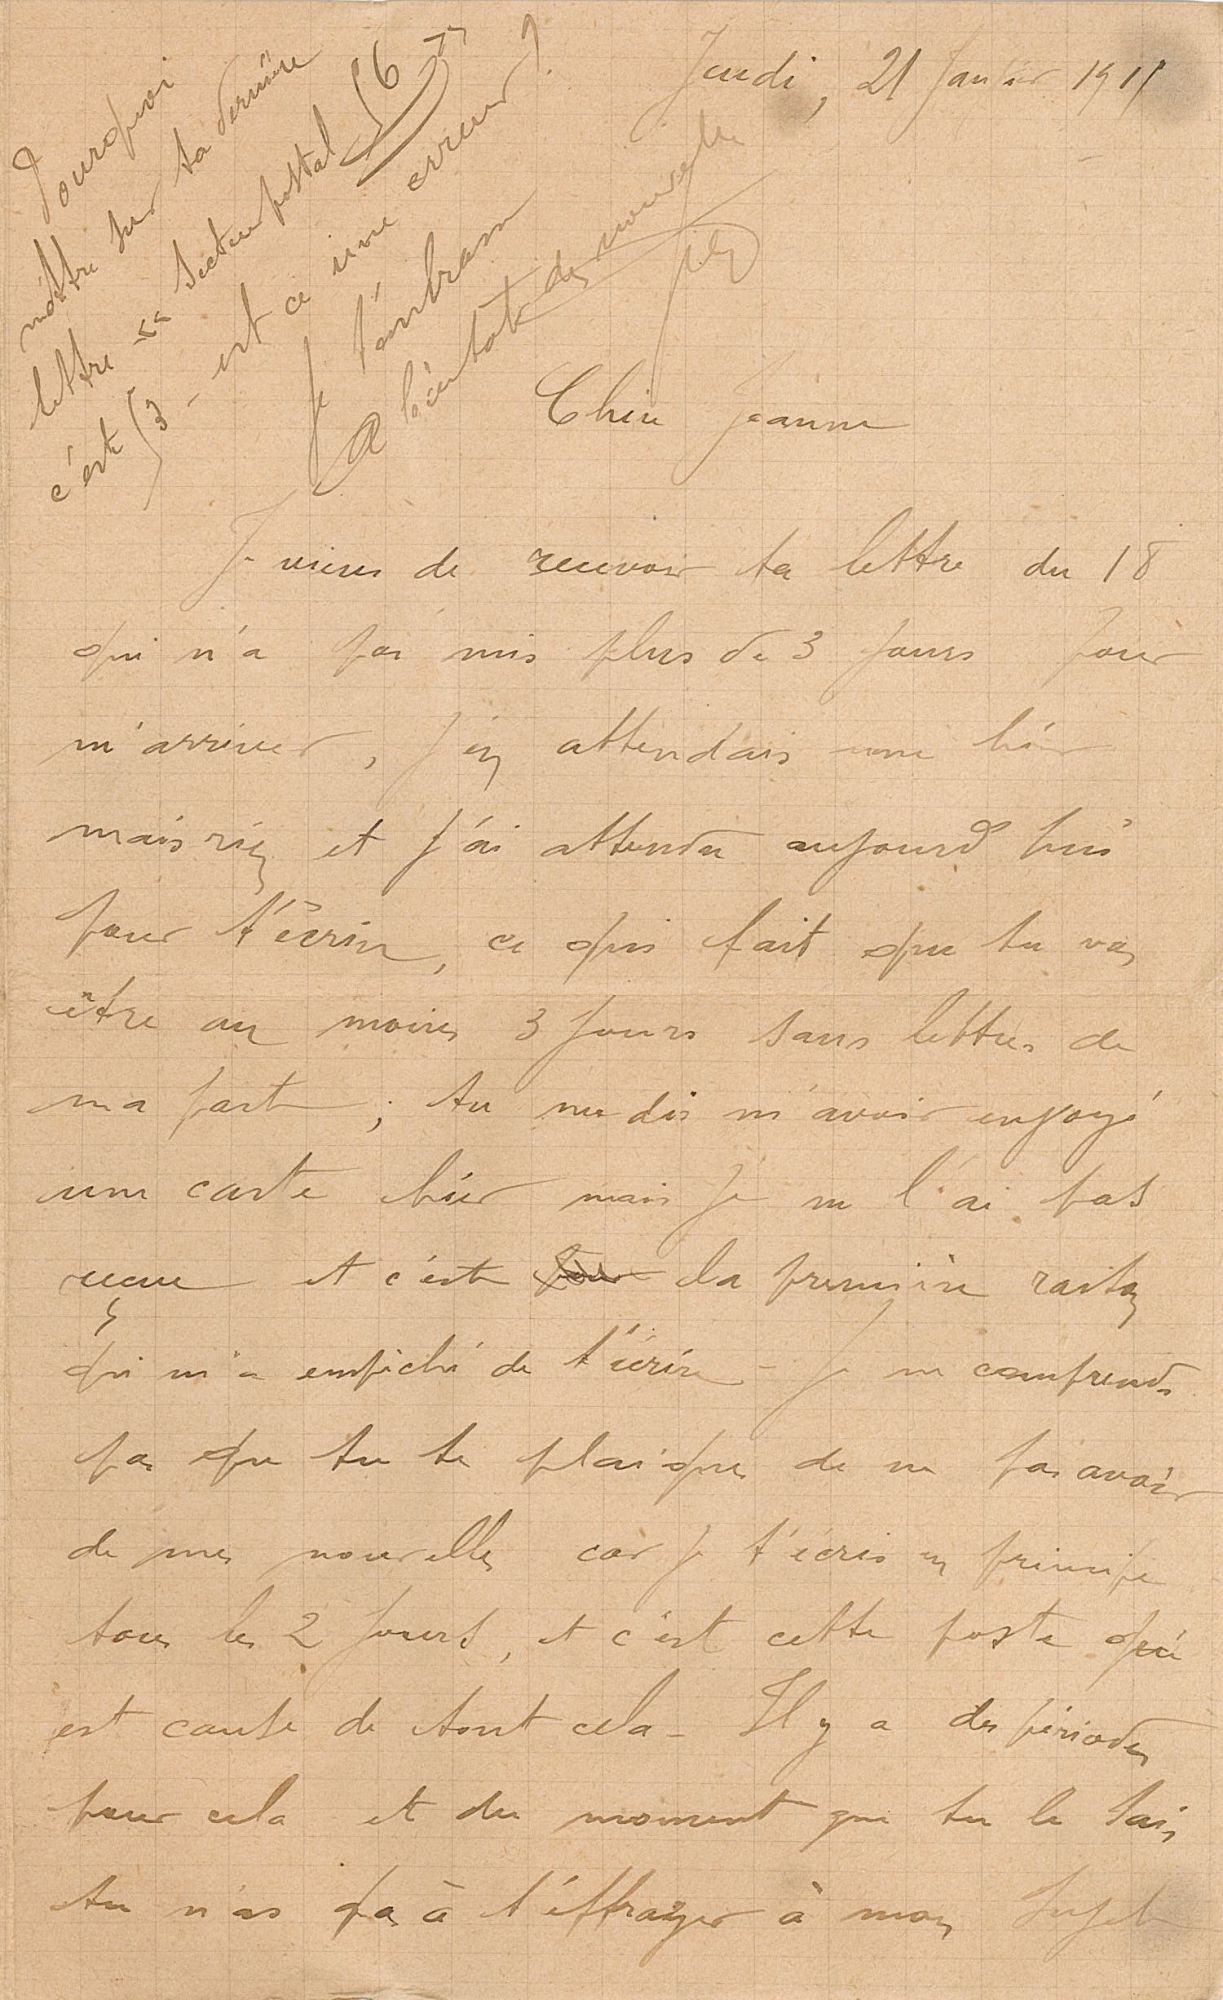 Jeudi, 21 Janvier 1915
Pourquoi
mettre sur ta dernière
lettre "secteur postal 16"
c'est 13 - est ce une erreur ?
Je t'embrasse
A bientôt des nouvelles
Chère Jeanne
Je viens de recevoir ta lettre du 18
qui n'a pas mis plus de 3 jours pour
m'arriver, j'en attendais une hier
mais rien et j'ai attendu aujourd'hui
pour t'écrire, ce qui fait que tu vas
être au moins 3 jours sans lettres de
ma part ; tu me dis m'avoir envoyé
une carte hier mais je ne l'ai pas
reçue et c'est la première raison
qui m'a empêché de t'écrire - Je ne comprends
pas que tu te plaignes de ne pas avoir
de mes nouvelles car je t'écris en principe
tous les 2 jours, et c'est cette poste qui
est cause de tout cela - Il y a des périodes
pour cela et du moment que tu le sais
tu n'as pas à t'effrayer à mon sujet